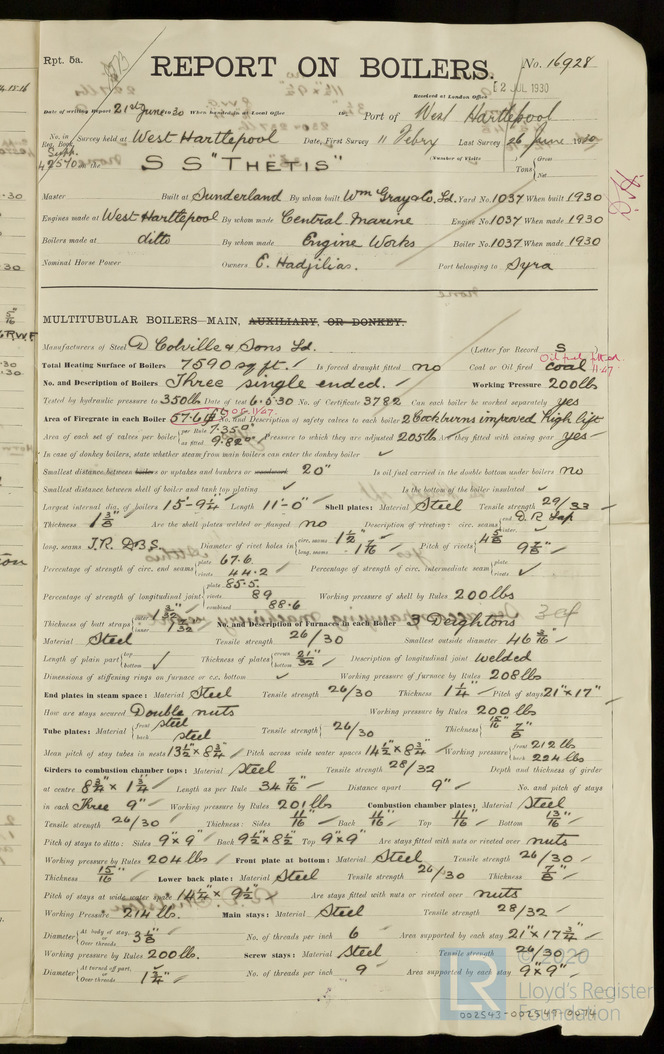 Rpt. 5a.
REPORT ON BOILERS.
No. 16928
Received at London Office 2 JUL 1930
Date of writing Report 21st June 1930 When handed in at Local Office 192 Port of West Hartlepool
No. in Reg. Book. Survey held at West Hartlepool Date, First Survey 11 Febry Last Survey 26 June 1930
Supp. 42570
SS "THETIS"
(Number of Visits
Tons Gross Net
Master Built at Sunderland By whom built Wm Gray & Co. Ld. Yard No. 1037 When built 1930
Engines made at West Hartlepool By whom made Central Marine Engine No. 1037 When made 1930
Boilers made at ditto By whom made Engine Works Boiler No. 1037 When made 1930
Nominal Horse Power Owners E. Hadjilias. Port belonging to Syra
MULTITUBULAR BOILERS—MAIN, AUXILIARY, OR DONKEY.
Manufacturers of Steel D Colville & Sons Ld. (Letter for Record S
Oil fuel fitted 11.47.
Total Heating Surface of Boilers 7590 sq ft. Is forced draught fitted no Coal or Oil fired coal
No. and Description of Boilers Three single ended. Working Pressure 200 lbs
Tested by hydraulic pressure to 350 lbs Date of test 6.5.30 No. of Certificate 3782 Can each boiler be worked separately yes
Area of Firegrate in each Boiler 57.6 No. and Description of safety valves to each boiler 2 Cockburns improved High lift
Area of each set of valves per boiler per Rule 7.35 as fitted 9.82 Pressure to which they are adjusted 205 lbs Are they fitted with easing gear yes
In case of donkey boilers, state whether steam from main boilers can enter the donkey boiler ✓
Smallest distance between boilers or uptakes and bunkers or woodwork 20" Is oil fuel carried in the double bottom under boilers no
Smallest distance between shell of boiler and tank top plating ✓ Is the bottom of the boiler insulated ✓
Largest internal dia. of boilers 15'-9 1/4" Length 11'-0" Shell plates: Material Steel Tensile strength 29/33
Thickness 1 3/8" Are the shell plates welded or flanged no Description of riveting: circ. seams end D.R. Lap inter.
long. seams T.R. D.B.S. Diameter of rivet holes in circ. seams 1 1/2" long. seams 1 7/16" Pitch of rivets 4 5/8 9 7/8"
Percentage of strength of circ. end seams plate 67.6 rivets 44.2 Percentage of strength of circ. intermediate seam plate rivets ✓
Percentage of strength of longitudinal joint plate 85.5 rivets 89 combined 88.6 Working pressure of shell by Rules 200 lbs
Thickness of butt straps outer 1 3/32" inner 1 7/32 No. and Description of Furnaces in each Boiler 3 Deightons
Material Steel Tensile strength 26/30 Smallest outside diameter 46 3/16"
Length of plain part top bottom ✓ Thickness of plates crown bottom 21/32" Description of longitudinal joint welded
Dimensions of stiffening rings on furnace or c.c. bottom ✓ Working pressure of furnace by Rules 208 lbs
End plates in steam space: Material Steel Tensile strength 26/30 Thickness 1 1/4" Pitch of stays 21" x 17"
How are stays secured Double nuts Working pressure by Rules 200 lbs
Tube plates: Material front steel back steel Tensile strength 26/30 Thickness 15/16" 7/8"
Mean pitch of stay tubes in nests 13 1/2" x 8 3/4" Pitch across wide water spaces 14 1/2" x 8 3/4" Working pressure front 212 lbs back 224 lbs
Girders to combustion chamber tops: Material Steel Tensile strength 28/32 Depth and thickness of girder
at centre 8 3/4" x 1 3/4" Length as per Rule 34 7/16" Distance apart 9" No. and pitch of stays
in each Three 9" Working pressure by Rules 201 lbs Combustion chamber plates: Material Steel
Tensile strength 26/30 Thickness: Sides 11/16" Back 11/16" Top 11/16" Bottom 13/16"
Pitch of stays to ditto: Sides 9" x 9" Back 9 1/2" x 8 1/2" Top 9" x 9" Are stays fitted with nuts or riveted over nuts
Working pressure by Rules 204 lbs Front plate at bottom: Material Steel Tensile strength 26/30
Thickness 15/16" Lower back plate: Material Steel Tensile strength 26/30 Thickness 7/8"
Pitch of stays at wide water space 14 1/2" x 9 1/2" Are stays fitted with nuts or riveted over nuts
Working Pressure 214 lb. Main stays: Material Steel Tensile strength 28/32
Diameter At body of stay, or Over threads 3 1/8" No. of threads per inch 6 Area supported by each stay 21" x 17 3/4"
Working pressure by Rules 200 lbs. Screw stays: Material Steel Tensile strength 26/30
Diameter At turned off part, or Over threads 1 3/4" No. of threads per inch 9 Area supported by each stay 9" x 9"
© 2020
LR Lloyd's Register Foundation
002543-002549-0074